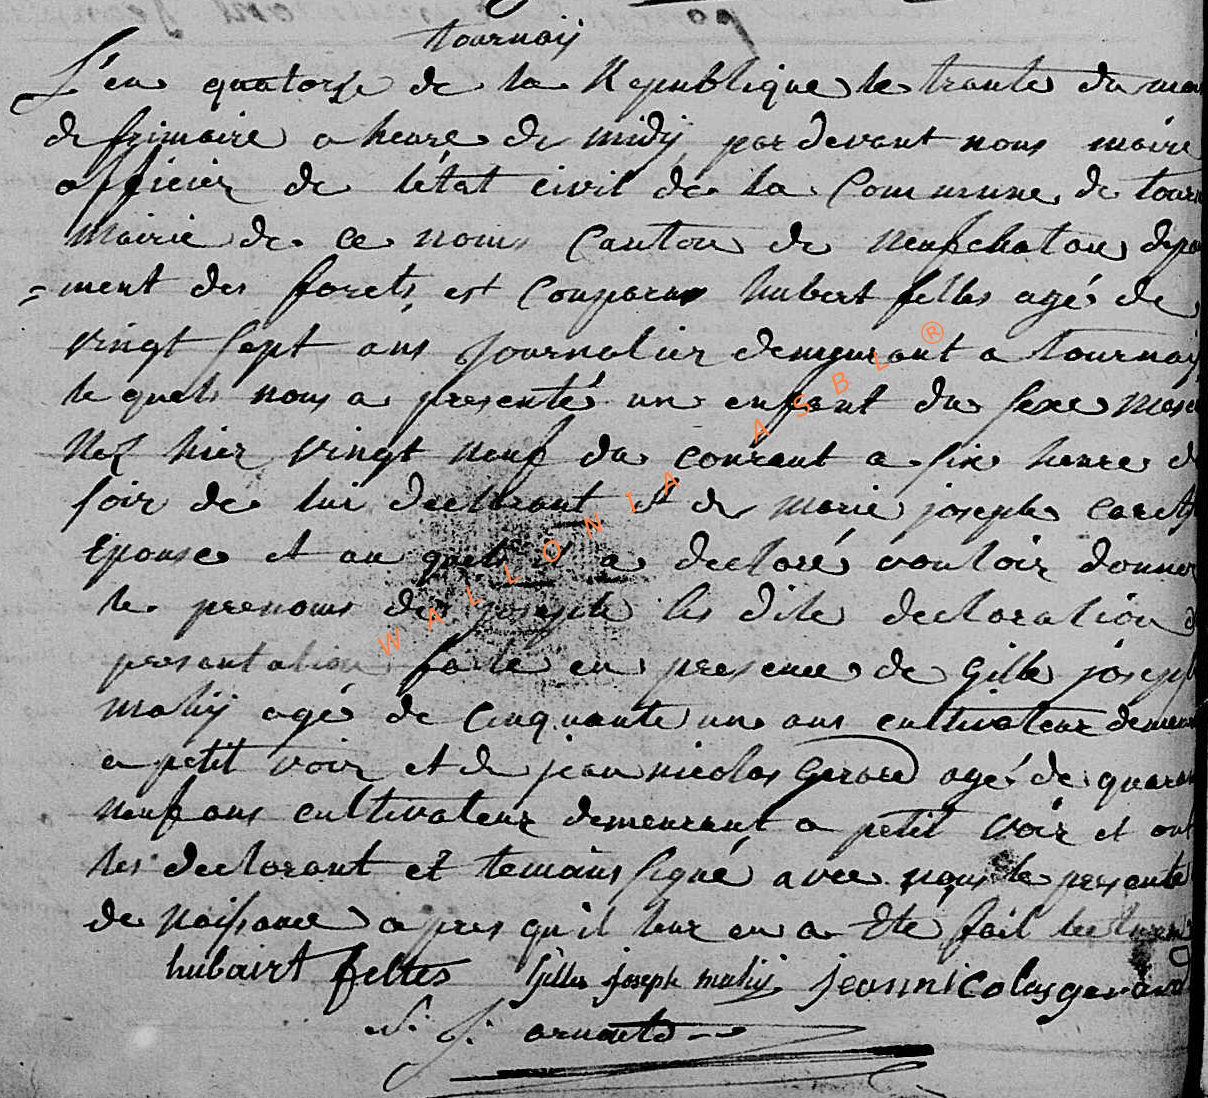 tournaÿ
L'en quatorse de la Republique le trante du moi
de frimaire a heure de midÿ par devant nous maire
officier de l'état civil de la Commune de tour
Mairie de ce nom Canton de neufchatau depa
=ment des forets, est Comparus hubert feltes agé de
vingt sept ans journalier demeurant a tournaÿ
le quels nous a presenté un enfant du sexe masc
Nez hier vingt neuf du courant a six heure d
soir de lui declarant et de marie joseph
Epouse et au quels il a declaré vouloir donner
le prenoms de joseph les dite declaration
presantation faite en presence de Gille joseph
mahÿ agé de Cinquante un ans cultivateur demeu
a petit voir et de jean nicolas Gerard agé de quaran
neuf ans cultivateur demeurant a petit voir et ont
les declarant et temoins signé avec nous le presente
de naissance apres qu'il leur en a Eté fait lecture
hubairt feltes Gilles joseph mahÿ jeannicolasgerard
WALLONIA ASBL ®